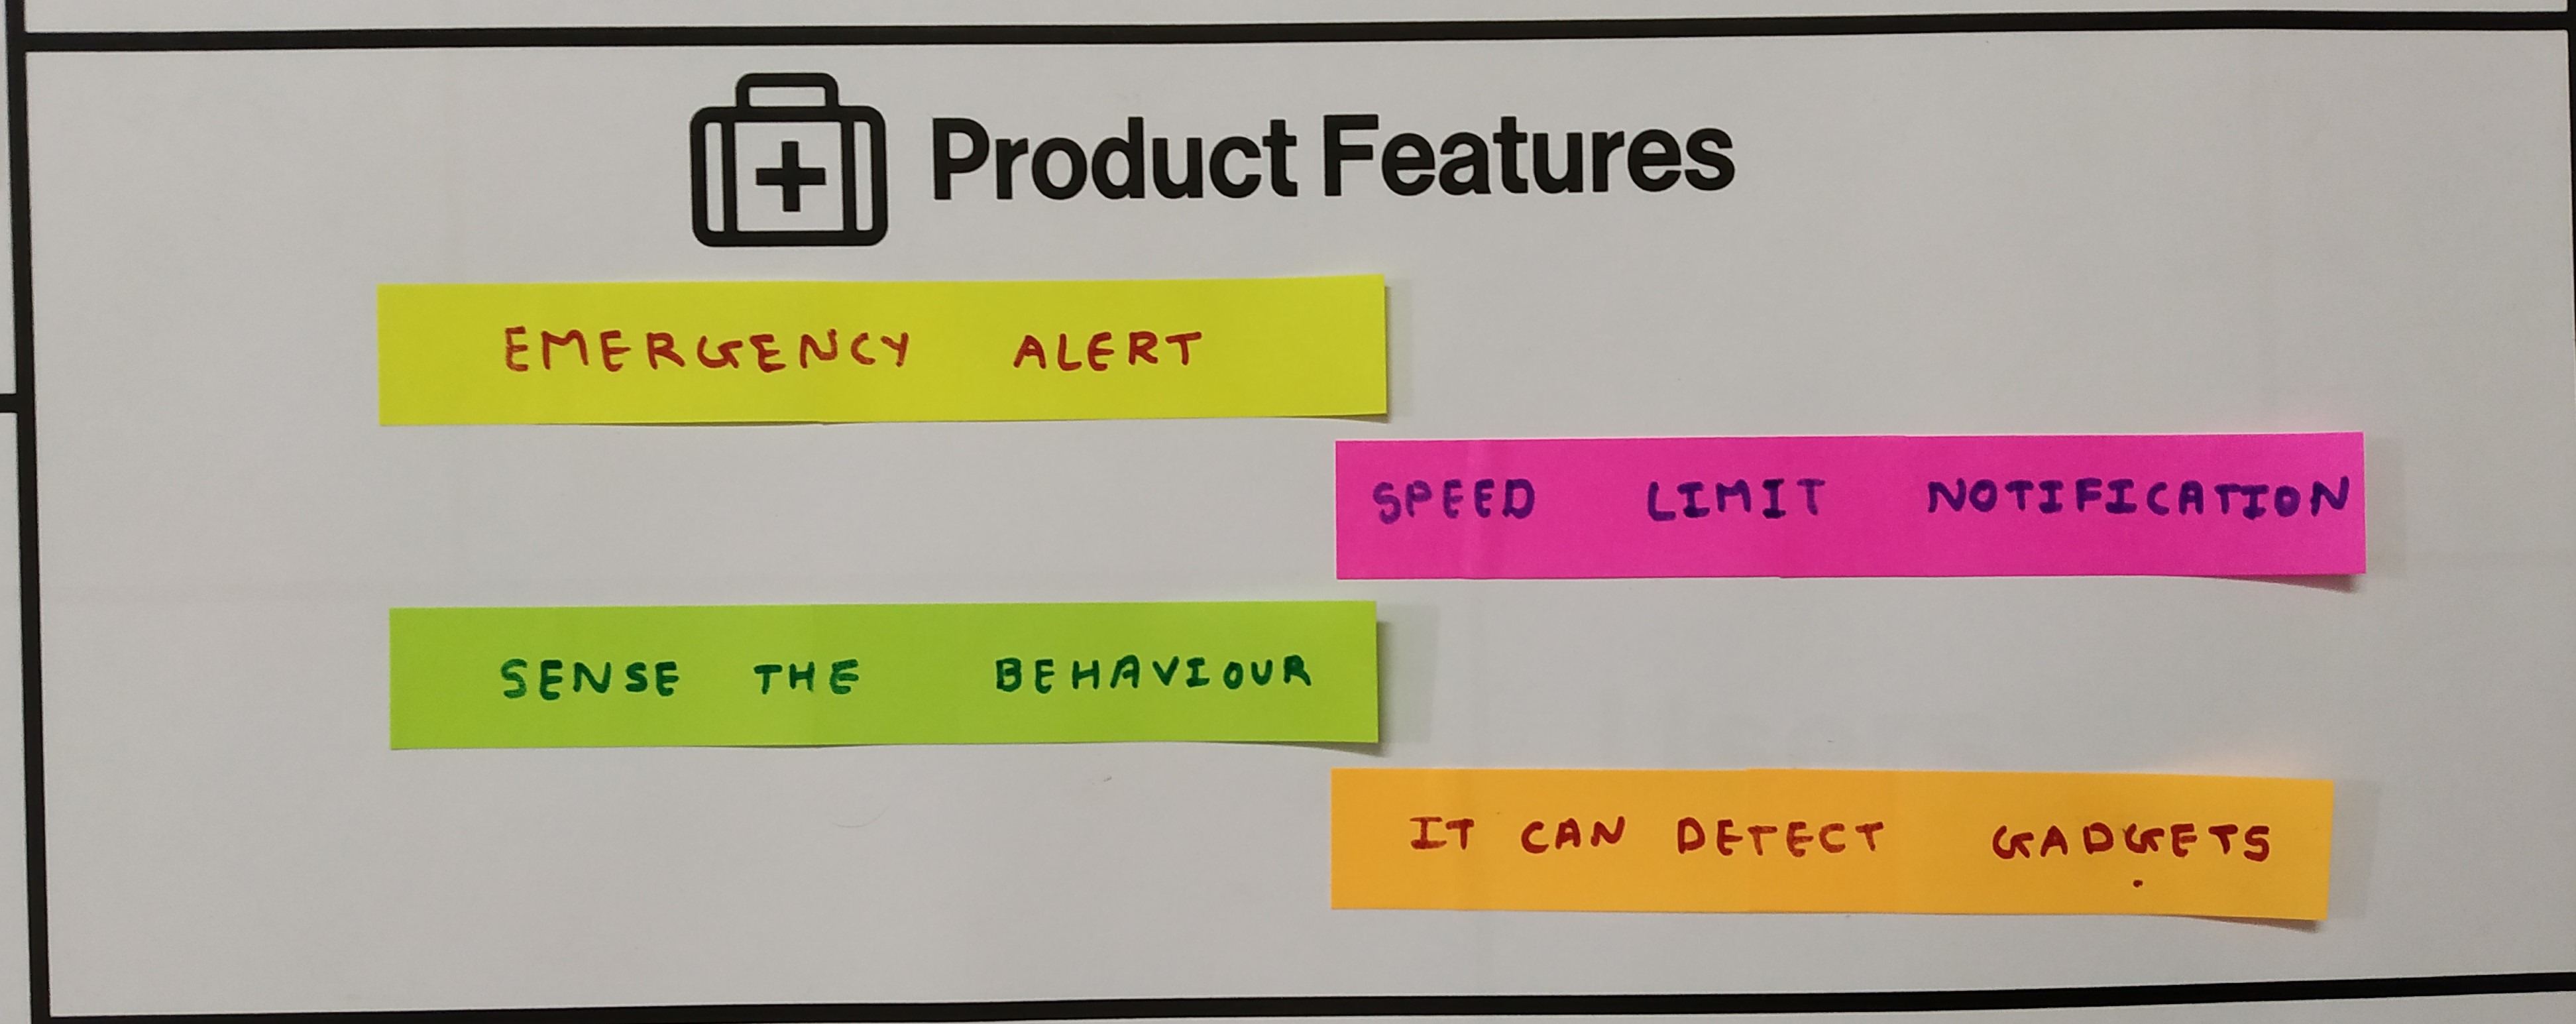 Product Features
EMERGENCY ALERT
SPEED LIMIT NOTIFICATION
SENSE THE BEHAVIOUR
IT CAN DETECT GADGETS